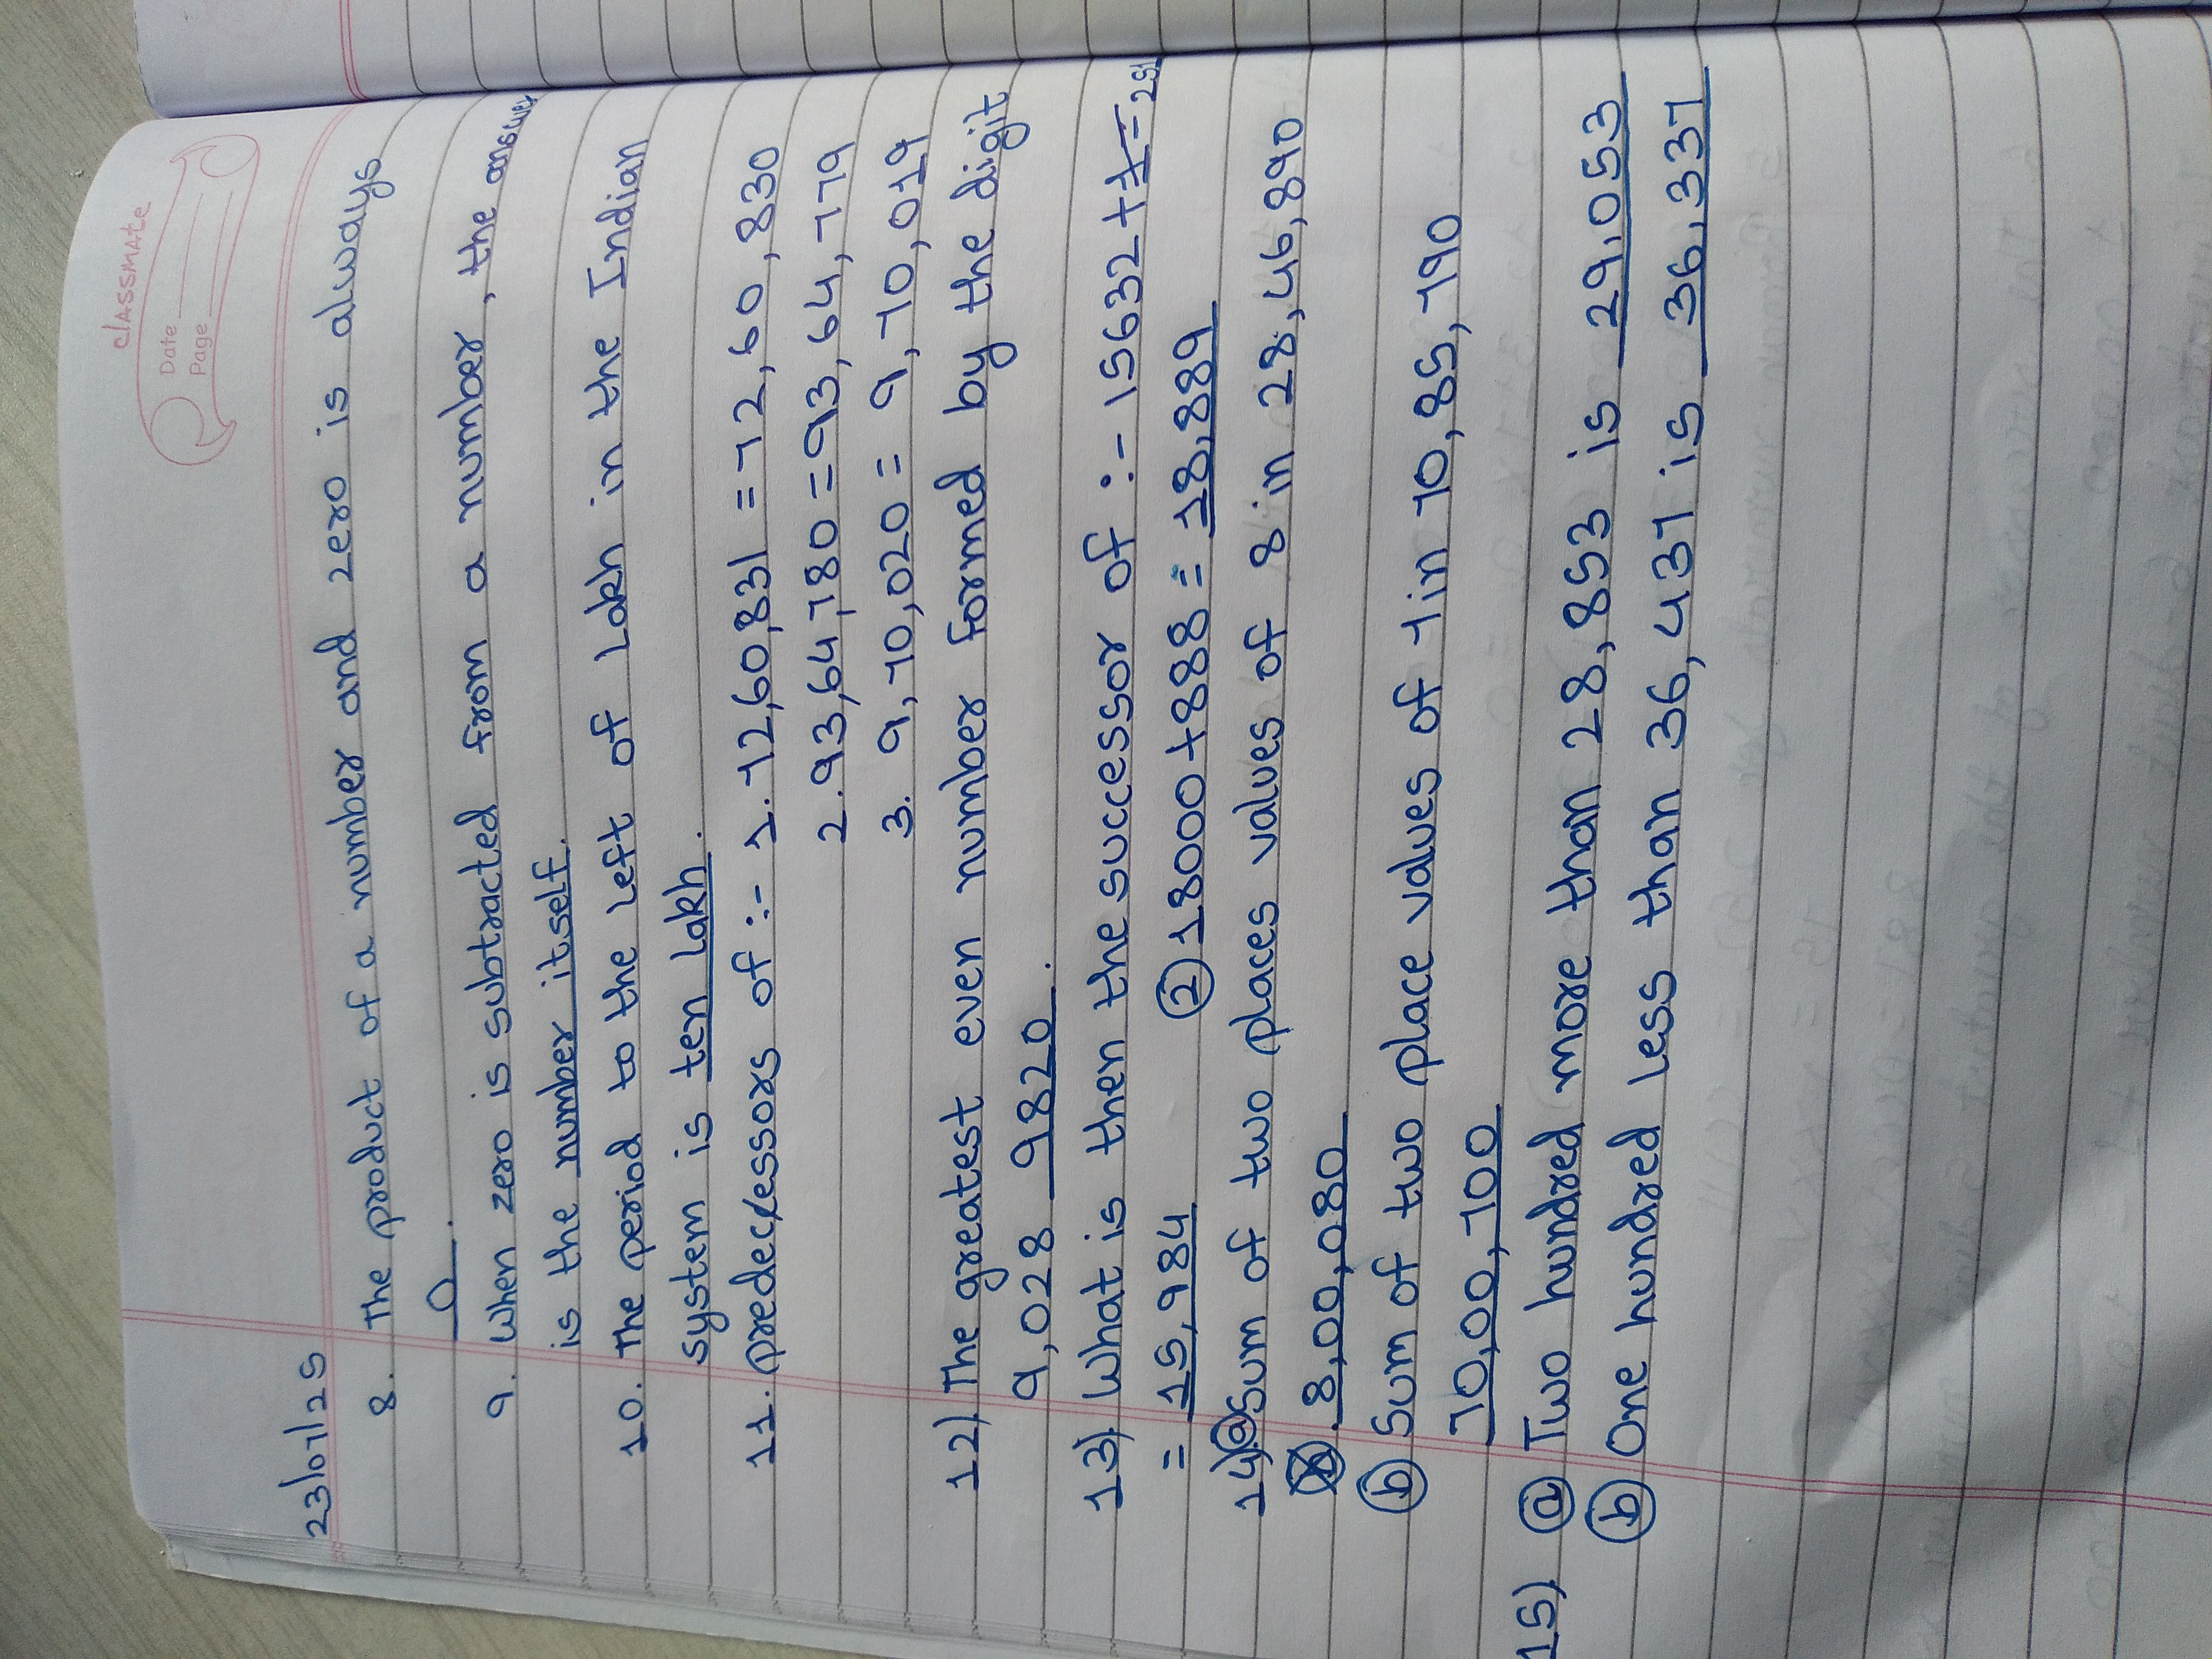 classmate
Date
Page
23/07/25
8. The product of a number and zero is always
0.
9. When zero is subtracted from a number, the answer
is the number itself.
10. The period to the left of lakh in the Indian
system is ten lakh.
11. predecessors of :- 1. 72,60,831 = 72,60,830
2. 93,64,780 = 93,64,779
3. 9,70,020 = 9,70,019
12) The greatest even number formed by the digit
9,028 9820.
13) What is then the successor of :- 15632 +
= 15,984 ② 18000+888 = 18,889
14) ⓐ Sum of two places values of 8 in 28,46,890
8,00,080
ⓑ Sum of two place values of 7 in 70,85,790
70,00,700
15) ⓐ Two hundred more than 28,853 is 29,053
ⓑ One hundred less than 36,437 is 36,337